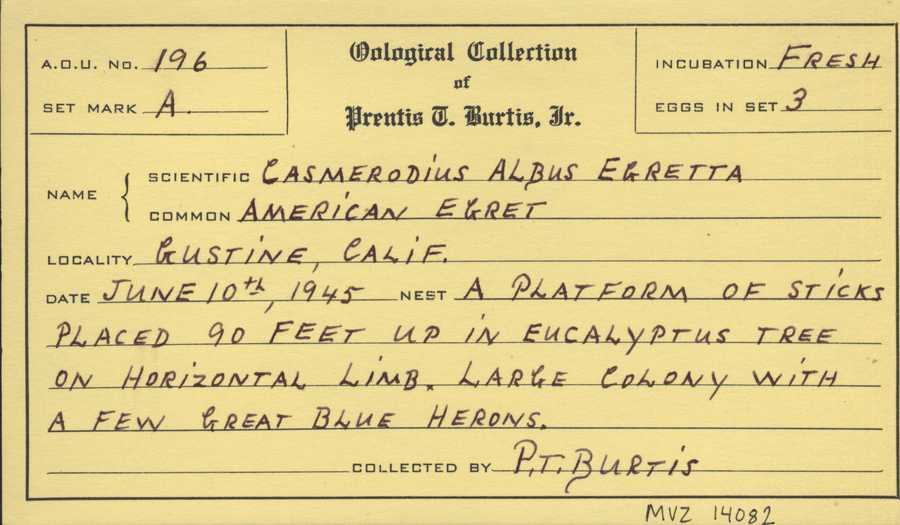 A.O.U. No. 196
SET MARK A.
Oological Collection
of
Prentis T. Burtis, Jr.
INCUBATION FRESH
EGGS IN SET 3
NAME
SCIENTIFIC CASMERODIUS ALBUS EGRETTA
COMMON AMERICAN EGRET
LOCALITY GUSTINE, CALIF.
DATE JUNE 10th, 1945 NEST A PLATFORM OF STICKS
PLACED 90 FEET UP IN EUCALYPTUS TREE
ON HORIZONTAL LIMB. LARGE COLONY WITH
A FEW GREAT BLUE HERONS.
COLLECTED BY P.T. BURTIS
MVZ 14082